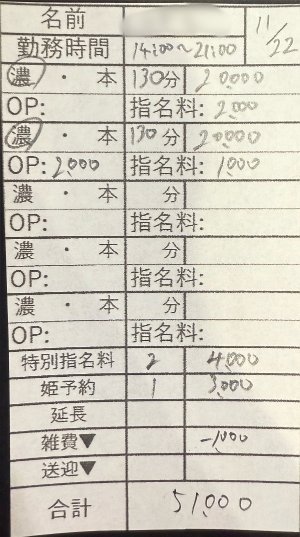 名前 11/22
勤務時間 14:00～21:00
濃・本 130分 20,000
OP: 指名料: 2,000
濃・本 130分 20,000
OP: 2,000 指名料: 1,000
濃・本 分
OP: 指名料:
濃・本 分
OP: 指名料:
濃・本 分
OP: 指名料:
特別指名料 2 4,000
姫予約 1 3,000
延長
雑費▼ -1,000
送迎▼
合計 51,000